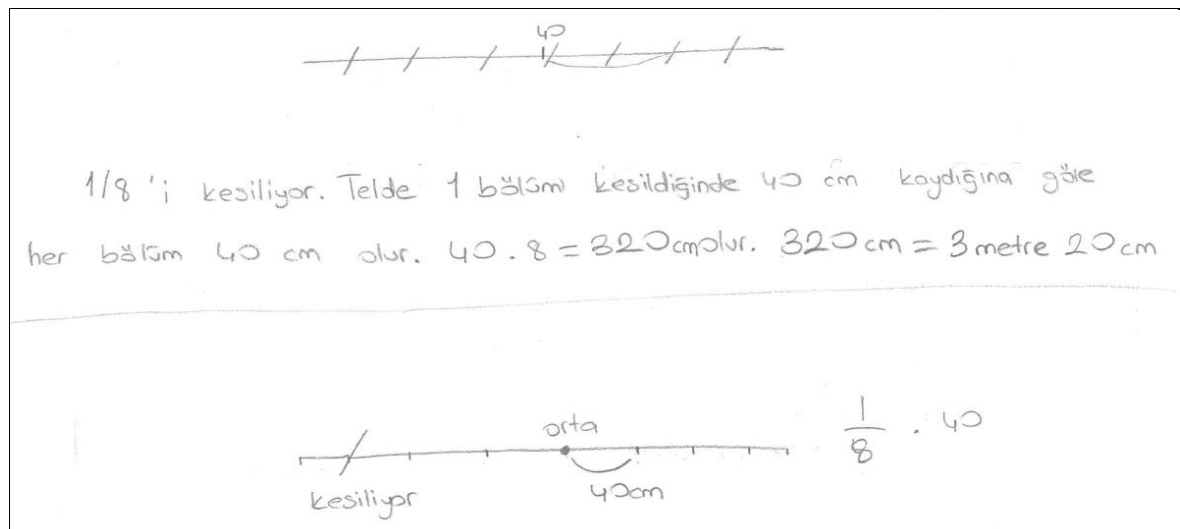 40
1/8 'i kesiliyor. Telde 1 bölüm kesildiğinde 40 cm kaydığına göre
her bölüm 40 cm olur. 40 . 8 = 320cm olur. 320 cm = 3 metre 20 cm
orta
1/8 . 40
kesiliyor
40cm